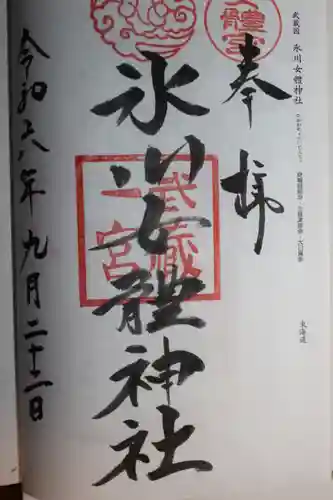 武蔵国 氷川女體神社
東海道
奉拝
氷川女體神社
武蔵
一宮
令和六年九月二十二日